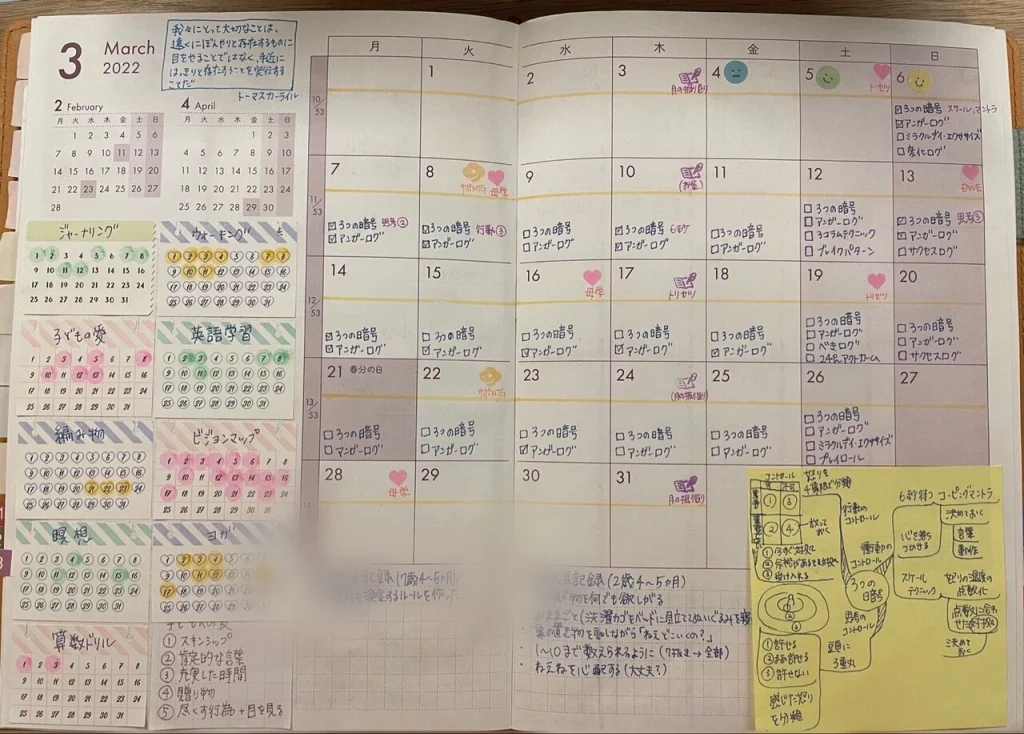 3 March
2022
我々にとって大切なことは、
遠くにぼんやりと存在するものに
目をやることではなく、手近に
はっきりと存在することを実行する
ことだ
トーマスカーライル
2 February
月 火 水 木 金 土 日
1 2 3 4 5 6
7 8 9 10 11 12 13
14 15 16 17 18 19 20
21 22 23 24 25 26 27
28
4 April
月 火 水 木 金 土 日
1 2 3
4 5 6 7 8 9 10
11 12 13 14 15 16 17
18 19 20 21 22 23 24
25 26 27 28 29 30
ジャーナリング
1 2 3 4 5 6 7 8
9 10 11 12 13 14 15 16
17 18 19 20 21 22 23 24
25 26 27 28 29 30 31
ウォーキング
1 2 3 4 5 6 7 8
9 10 11 12 13 14 15 16
17 18 19 20 21 22 23 24
25 26 27 28 29 30 31
子どもの愛
1 2 3 4 5 6 7 8
9 10 11 12 13 14 15 16
17 18 19 20 21 22 23 24
25 26 27 28 29 30 31
英語学習
1 2 3 4 5 6 7 8
9 10 11 12 13 14 15 16
17 18 19 20 21 22 23 24
25 26 27 28 29 30 31
編み物
1 2 3 4 5 6 7 8
9 10 11 12 13 14 15 16
17 18 19 20 21 22 23 24
25 26 27 28 29 30 31
ビジョンマップ
1 2 3 4 5 6 7 8
9 10 11 12 13 14 15 16
17 18 19 20 21 22 23 24
25 26 27 28 29 30 31
瞑想
1 2 3 4 5 6 7 8
9 10 11 12 13 14 15 16
17 18 19 20 21 22 23 24
25 26 27 28 29 30 31
ヨガ
1 2 3 4 5 6 7 8
9 10 11 12 13 14 15 16
17 18 19 20 21 22 23 24
25 26 27 28 29 30 31
算数ドリル
1 2 3 4 5 6 7 8
9 10 11 12 13 14 15 16
17 18 19 20 21 22 23 24
25 26 27 28 29 30 31
子どもの愛
① スキンシップ
② 肯定的な言葉
③ 充実した時間
④ 贈り物
⑤ 尽くす行為+目を見る
月 火 水 木 金 土 日
10/53
1
2
3
月の振り返り
4
5
トリセツ
6
☑3つの暗号 スケール、マントラ
☑アンガーログ
☐ミラクルデイ・エクササイズ
☐変化ログ
11/53
7
☑3つの暗号 思考②
☑アンガーログ
8
母学
☑3つの暗号 行動③
☑アンガーログ
9
☐3つの暗号
☐アンガーログ
10
(お金)
☑3つの暗号 6秒
☑アンガーログ
11
☐3つの暗号
☐アンガーログ
12
☐3つの暗号
☐アンガーログ
☐3コラムテクニック
☐ブレイクパターン
13
☑3つの暗号 思考③
☑アンガーログ
☐サクセスログ
12/53
14
☑3つの暗号
☑アンガーログ
15
☐3つの暗号
☑アンガーログ
16
母学
☐3つの暗号
☑アンガーログ
17
トリセツ
☐3つの暗号
☑アンガーログ
18
☐3つの暗号
☑アンガーログ
19
トリセツ
☐3つの暗号
☐アンガーログ
☐べきログ
☐24hアクトカーム
20
☐3つの暗号
☐アンガーログ
☐サクセスログ
13/53
21 春分の日
☐3つの暗号
☐アンガーログ
22
☐3つの暗号
☐アンガーログ
23
☐3つの暗号
☑アンガーログ
24
(月の振り返り)
☐3つの暗号
☐アンガーログ
25
☐3つの暗号
☐アンガーログ
26
☐3つの暗号
☐アンガーログ
☐ミラクルデイ・エクササイズ
☐プレイロール
27
28
母学
29
30
31
月の振り返り
記録(7歳4~5ヶ月)
するルールを作った
記録(2歳4~5ヶ月)
物を何でも欲しがる
おままごと
動しながら「ねえどこいくの?」
・1~10まで数えられるように(7抜む→全部)
・ねえねを心配する(大丈夫?)
コントロール
怒りを
4種類で分類
① ③
② ④
放って
おく
① 今すぐ対処
③ 受け入れる
行動の
コントロール
衝動の
コントロール
3つの
暗号
思考の
コントロール
頭に
3重丸
① 許せる
② まあ許せる
③ 許せない
感じた怒り
を分類
6秒待つ
コーピングマントラ
心を落ち
つかせる
決めておく
言葉
動作
スケール
テクニック
怒りの温度の
点数化
点数に合わ
せた
決めて
おく